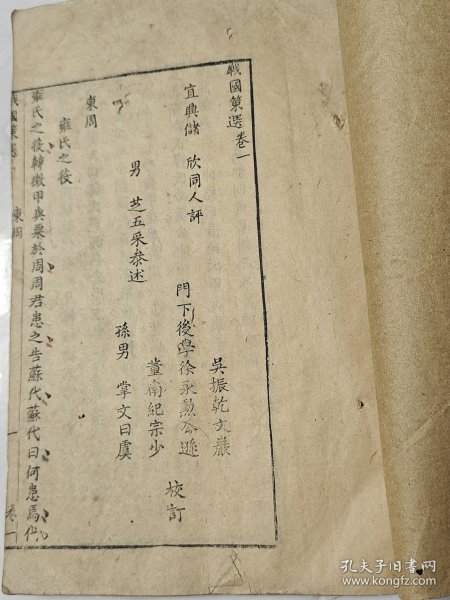 戰國策選卷一
宜興儲 欣同人評
男 芝五采叅述
吳振乾文巖
門下後學徐永勲公遜
董南紀宗少
孫男 掌文曰虞
校訂
東周
雍氏之役
雍氏之役韓徵甲與粟於周周君患之告蘇代蘇代曰何患焉代
戰國策選
東周
一
卷一
孔夫子旧书网
www.kongfz.com